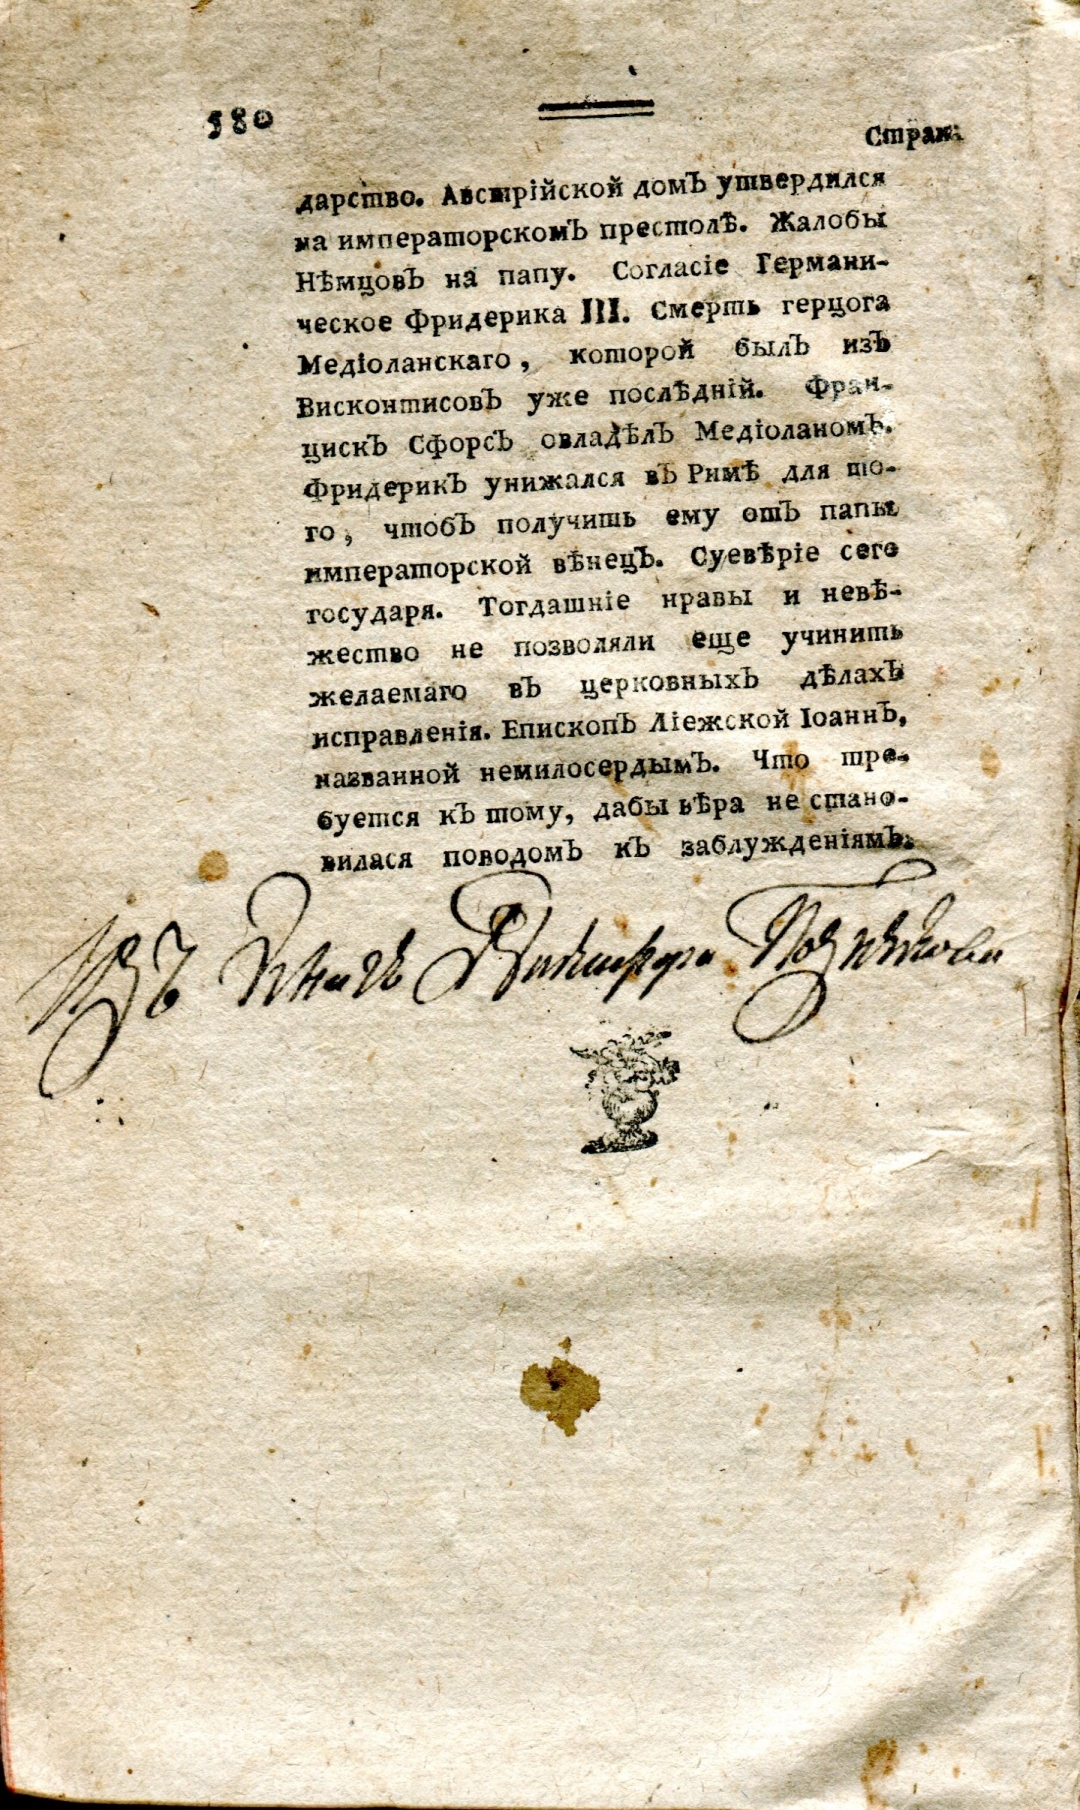 580
Стран.
дарство. Австрійской домЪ утвердился
на императорскомЪ престолѣ. Жалобы
НѣмцовЪ на папу. Согласіе Германи-
ческое Фридерика III. Смерть герцога
Медіоланскаго, которой былЪ изЪ
ВисконтисовЪ уже послѣдній. Фран-
цискЪ СфорсЪ овладѣлЪ МедіоланомЪ.
ФридерикЪ унижался вЪ Римѣ для то-
го, чтобЪ получить ему отЪ папы
императорской вѣнецЪ. Суевѣріе сего
государя. Тогдашніе нравы и невѣ-
жество не позволяли еще учинить
желаемаго вЪ церковныхЪ дѣлахЪ
исправленія. ЕпископЪ Ліежской ІоаннЪ,
названной немилосердымЪ. Что тре-
буется кЪ тому, дабы вѣра не стано-
вилася поводомЪ кЪ заблужденіямЪ.
Изъ Книгъ Никифора Позныкова